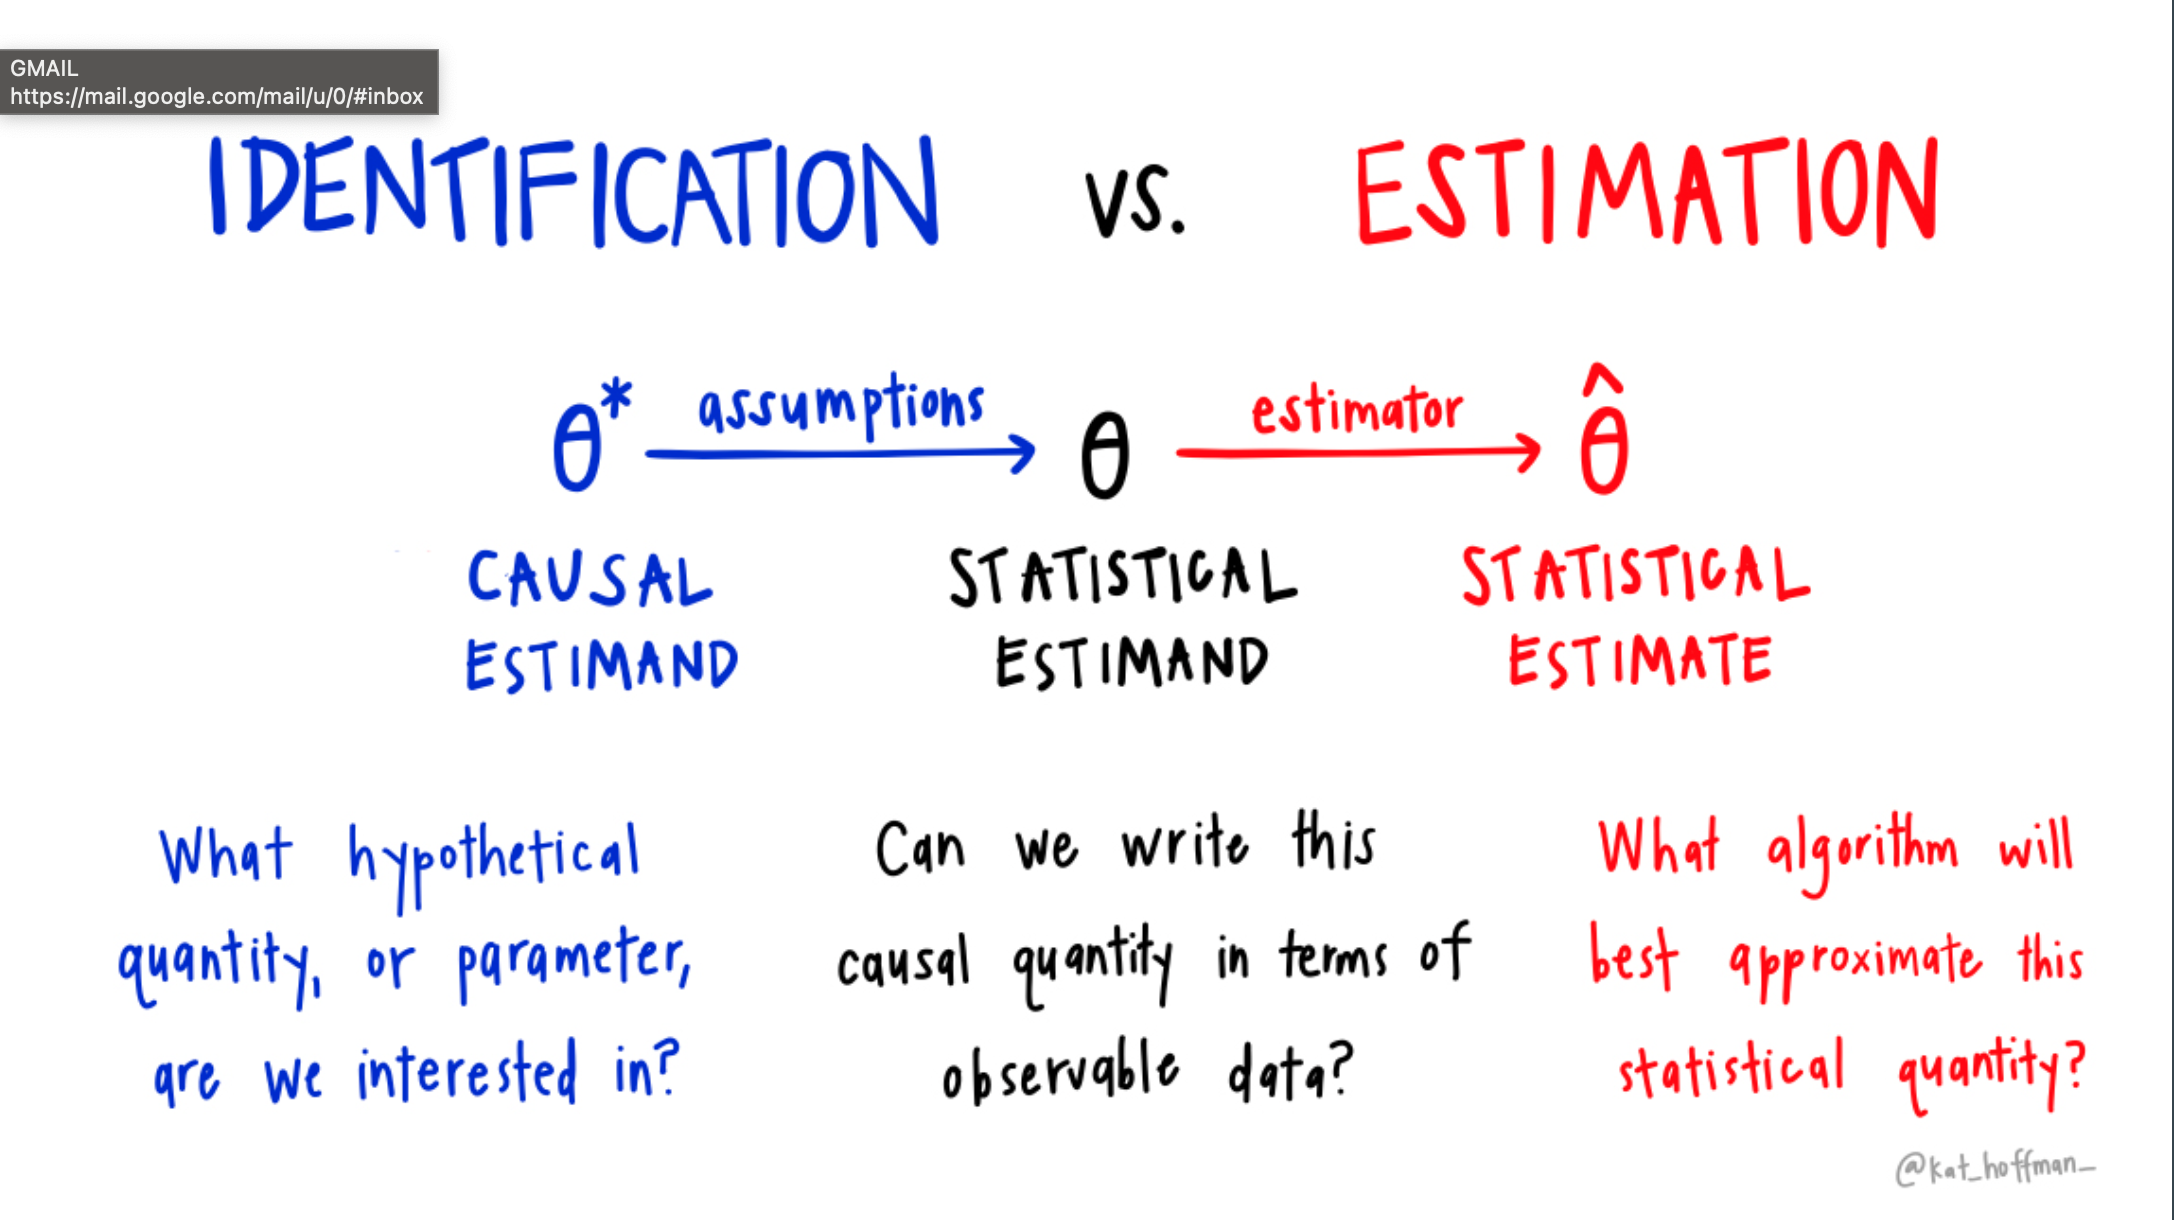 GMAIL
https://mail.google.com/mail/u/0/#inbox
IDENTIFICATION vs. ESTIMATION
θ* assumptions θ estimator θ̂
CAUSAL ESTIMAND
STATISTICAL ESTIMAND
STATISTICAL ESTIMATE
What hypothetical
quantity, or parameter,
are we interested in?
Can we write this
causal quantity in terms of
observable data?
What algorithm will
best approximate this
statistical quantity?
@kat_hoffman_